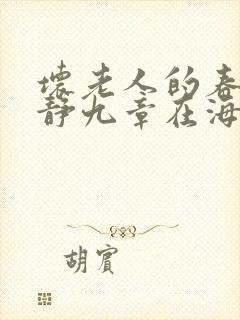 壞老人的春
静九章在海
胡賓